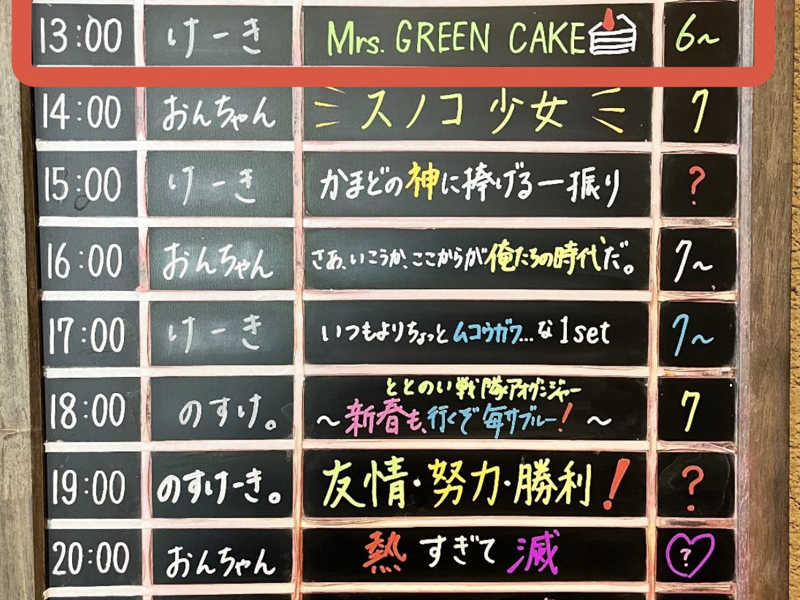 13:00 けーき Mrs. GREEN CAKE 6~
14:00 おんちゃん スノコ少女 7
15:00 けーき かまどの神に捧げる一振り ?
16:00 おんちゃん さあ、いこうか、ここからが俺たちの時代だ。 7~
17:00 けーき いつもよりちょっとムコウガワ...な1set 7~
18:00 のすけ。 ととのい戦隊アオグンジャー
~新春も、行くぞ毎サブルー!~ 7
19:00 のすけーき。 友情・努力・勝利! ?
20:00 おんちゃん 熱すぎて滅 ?